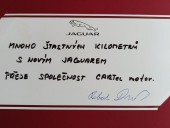 JAGUAR
MNOHO ŠŤASTNÝCH KILOMETRŮ
S NOVÝM JAGUAREM
PŘEJE SPOLEČNOST CARTEC MOTOR.